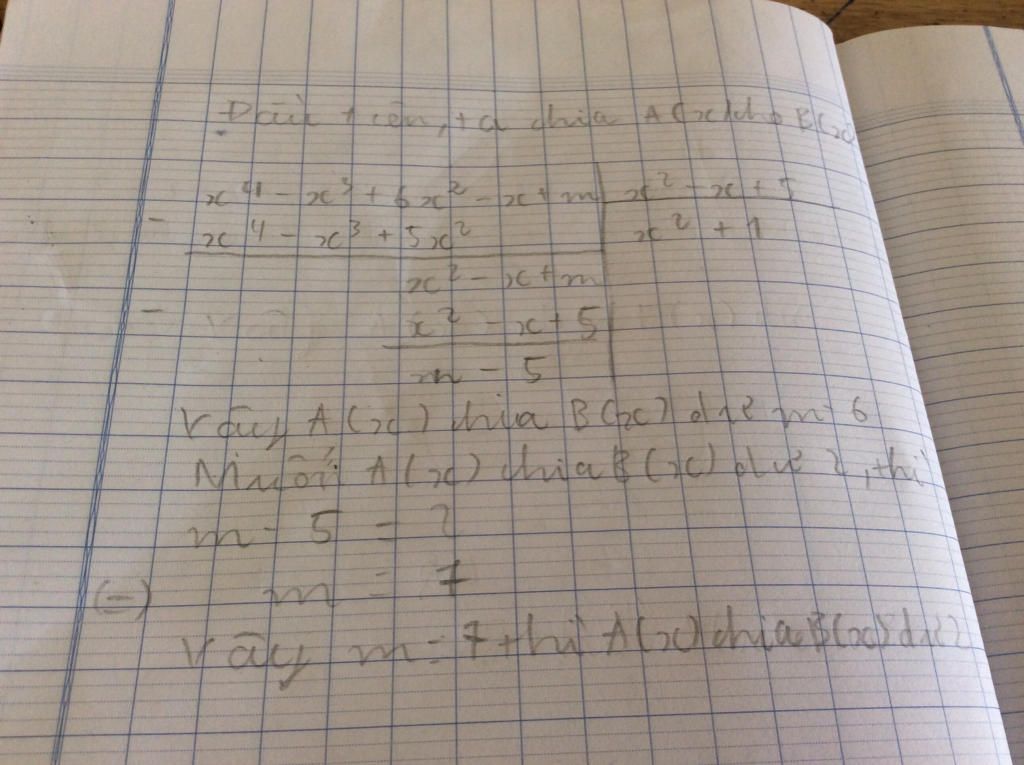 Đầu tiên, ta chia A(x) cho B(x)
x⁴ - x³ + 6x² - x + m | x² - x + 5
- x⁴ - x³ + 5x² | x² + 1
x² - x + m
- x² - x + 5
m - 5
Vậy A(x) chia B(x) dư m - 6
Muốn A(x) chia B(x) dư 2, thì
m - 5 = 2
(=) m = 7
Vậy m = 7 thì A(x) chia B(x) dư 2